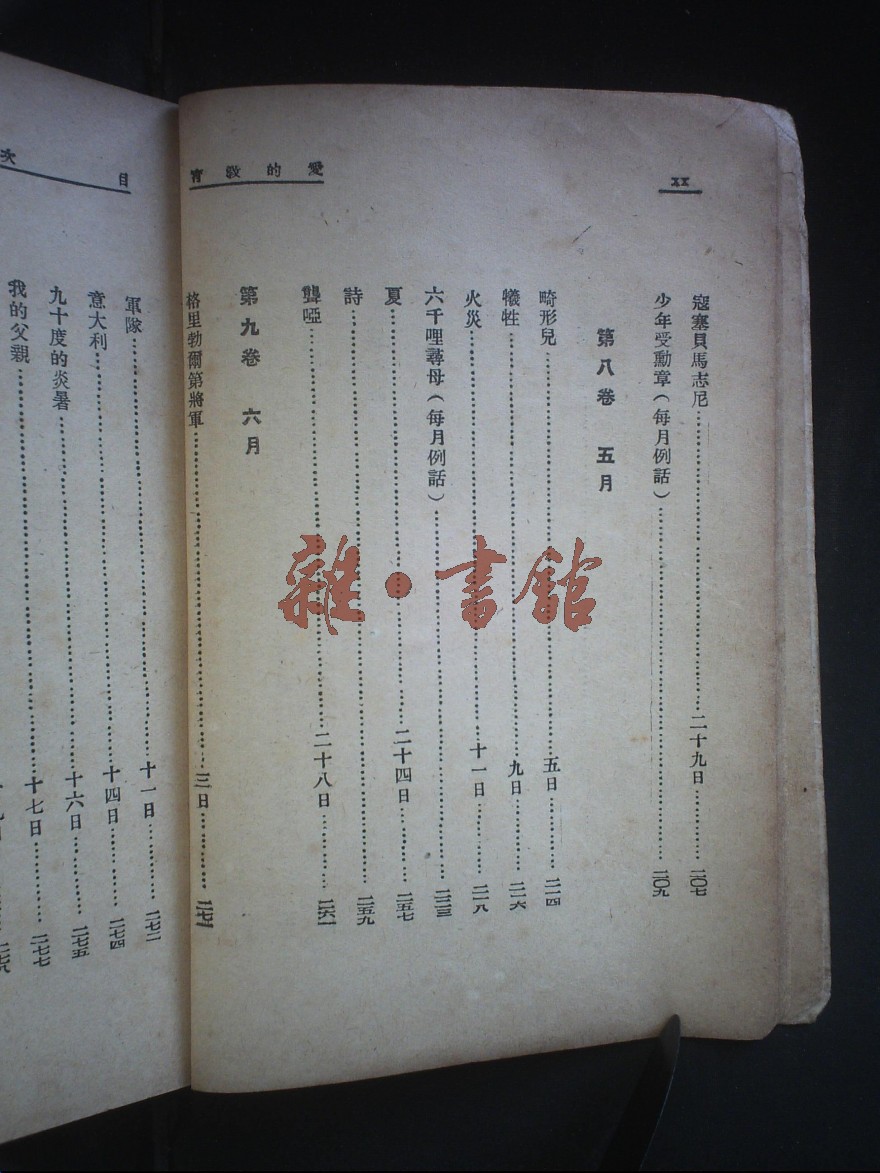 愛的敎育
寇塞貝馬志尼……二十九日……二〇七
少年受勳章（每月例話）……二〇九
第八卷　五月
畸形兒……五日……二一四
犧牲……九日……二一六
火災……十一日……二一八
六千哩尋母（每月例話）……二二三
夏……二十四日……二五七
詩……二五九
聾啞……二十八日……二六一
第九卷　六月
格里勃爾第將軍……三日……二七一
目次
軍隊……十一日……二七二
意大利……十四日……二七四
九十度的炎暑……十六日……二七五
我的父親……十七日……二七七
雜·書館